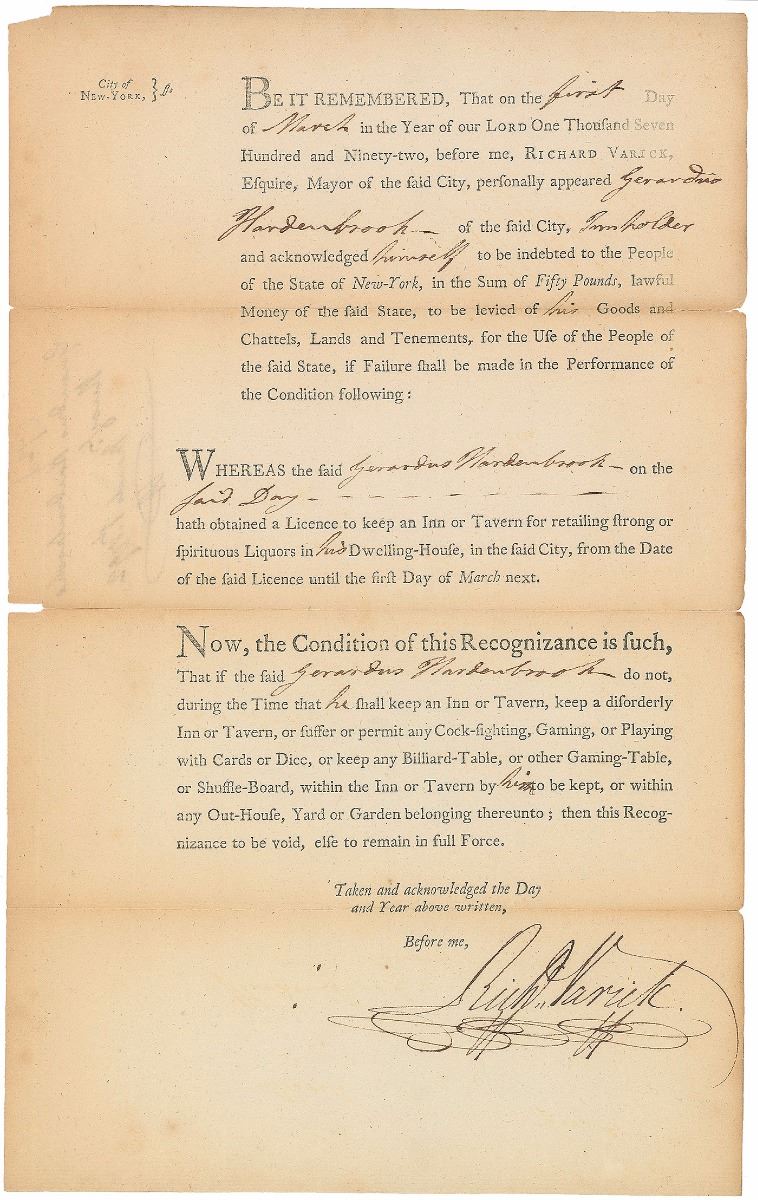 City of
NEW-YORK, } ſs.
BE IT REMEMBERED, That on the first Day
of March in the Year of our LORD One Thouſand Seven
Hundred and Ninety-two, before me, RICHARD VARICK,
Eſquire, Mayor of the ſaid City, perſonally appeared Gerardus
Hardenbrook — of the ſaid City, Innholder
and acknowledged himself to be indebted to the People
of the State of New-York, in the Sum of Fifty Pounds, lawful
Money of the ſaid State, to be levied of his Goods and
Chattels, Lands and Tenements, for the Uſe of the People of
the ſaid State, if Failure ſhall be made in the Performance of
the Condition following:
WHEREAS the ſaid Gerardus Hardenbrook — on the
said Day — — — — — —
hath obtained a Licence to keep an Inn or Tavern for retailing ſtrong or
ſpirituous Liquors in his Dwelling-Houſe, in the ſaid City, from the Date
of the ſaid Licence until the firſt Day of March next.
NOW, the Condition of this Recognizance is ſuch,
That if the ſaid Gerardus Hardenbrook — do not,
during the Time that he ſhall keep an Inn or Tavern, keep a diſorderly
Inn or Tavern, or ſuffer or permit any Cock-fighting, Gaming, or Playing
with Cards or Dice, or keep any Billiard-Table, or other Gaming-Table,
or Shuffle-Board, within the Inn or Tavern by him to be kept, or within
any Out-Houſe, Yard or Garden belonging thereunto; then this Recog-
nizance to be void, elſe to remain in full Force.
Taken and acknowledged the Day
and Year above written,
Before me,
Richd. Varick.